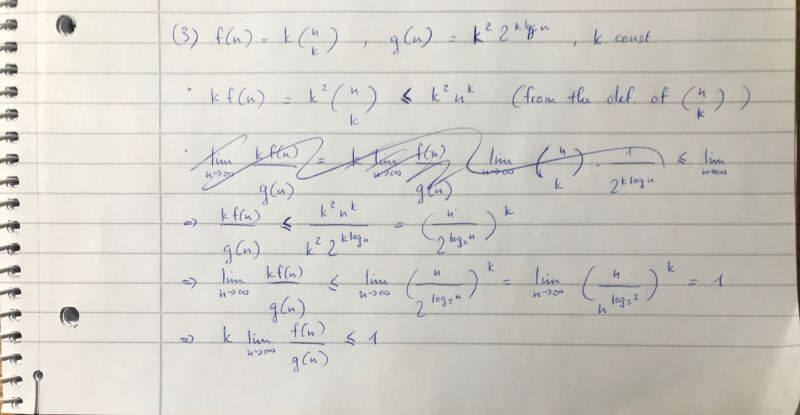 (3) f(n) = k (n k) , g(n) = k² 2^(k log n) , k const.
· k f(n) = k² (n k) ≤ k² n^k (from the def. of (n k))
· lim n→∞ k f(n) / g(n) = k lim n→∞ f(n) / g(n) lim n→∞ (n k) · 1 / 2^(k log n) ≤ lim
⇒ k f(n) / g(n) ≤ k² n^k / k² 2^(k log n) = (n / 2^(log₂ n))^k
⇒ lim n→∞ k f(n) / g(n) ≤ lim n→∞ (n / 2^(log₂ n))^k = lim n→∞ (n / n^(log₂ 2))^k = 1
⇒ k lim n→∞ f(n) / g(n) ≤ 1